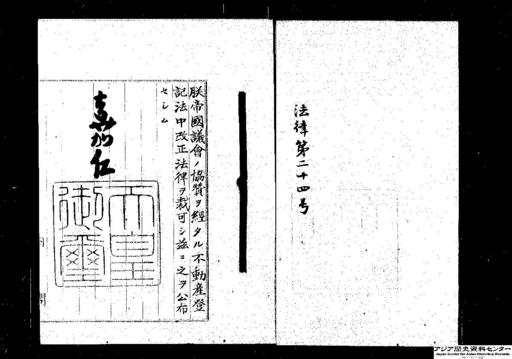 法律第二十四号
朕帝國議會ノ協賛ヲ經タル不動產登
記法中改正法律ヲ裁可シ茲ニ之ヲ公布
セシム
嘉仁
天皇
御璽
アジア歴史資料センター
Japan Center for Asian Historical Records